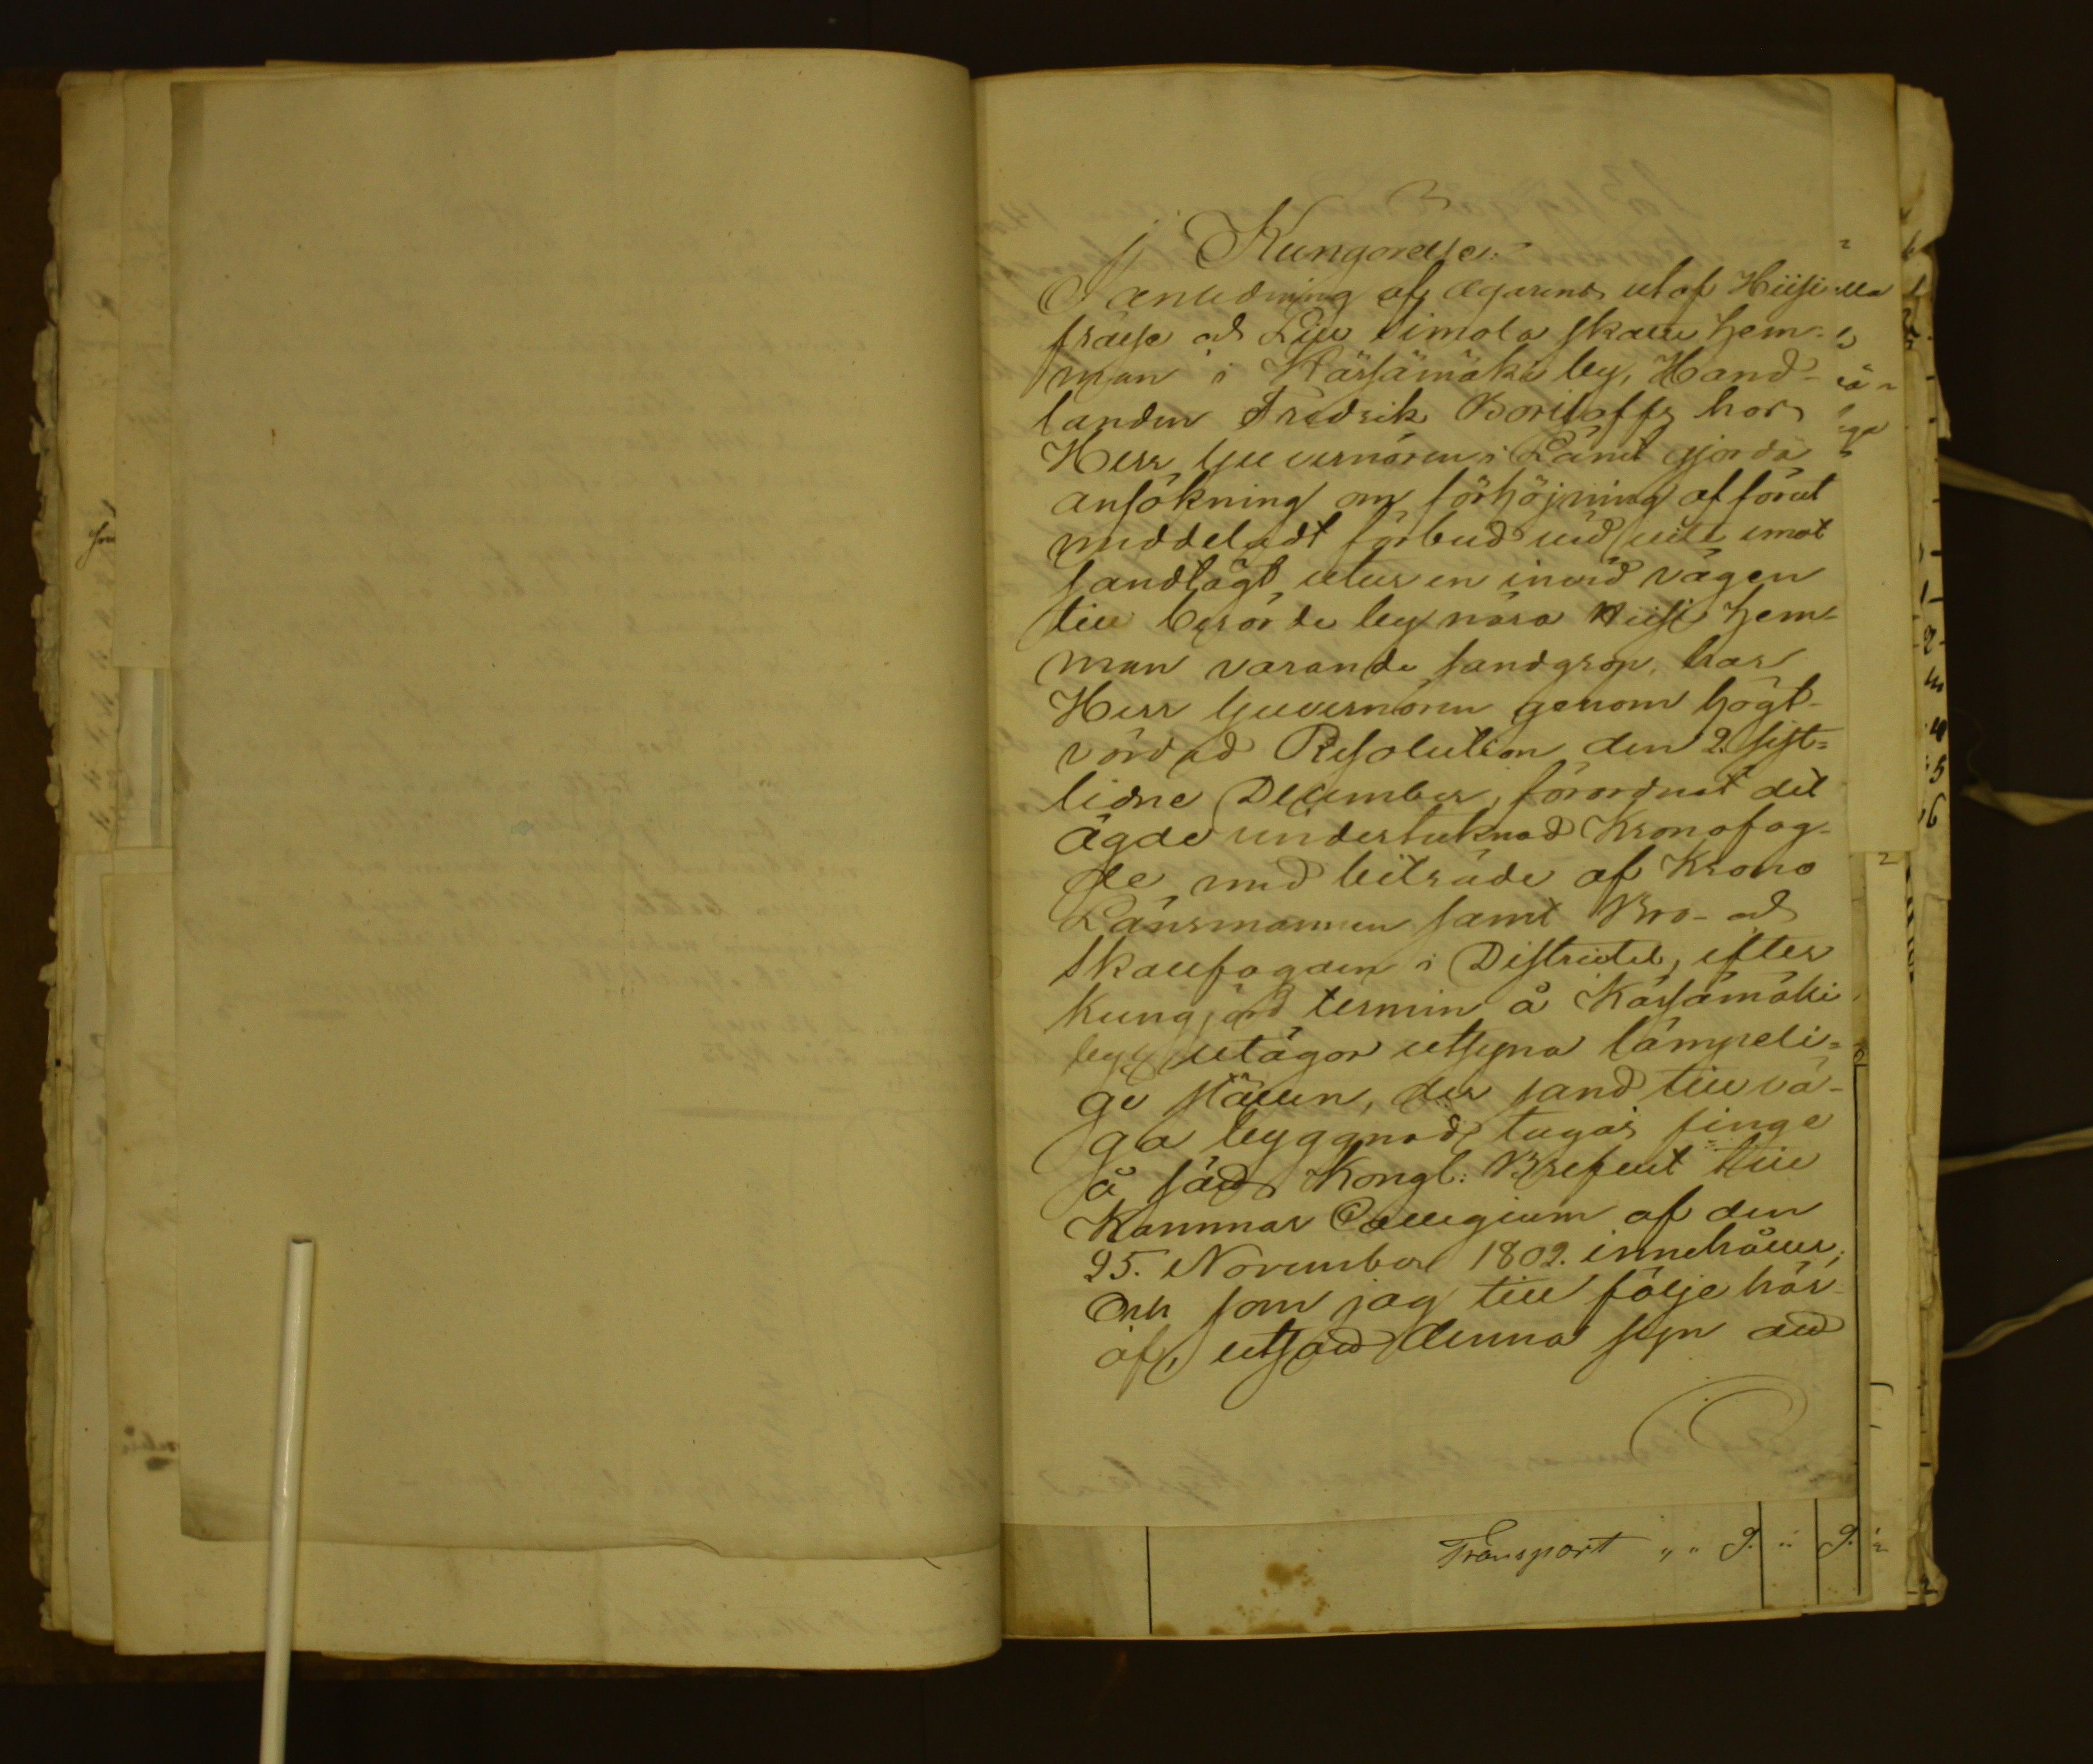 Kungörelse.
I anledning af ägarens utaf Hiisi
frälse och Lill Simola skatte hem-
man i Kärsämäki by, Hand-
landen Fredrik Boriloffs hos
Herr Guvernören i Länet gjorda
ansökning om förhöjning af förut
meddeladt förbud vid vite emot
sandtägt utur en invid vägen
till berörde by nära Hiisi hem-
man varande sandgrop, har
Herr Guvernören genom högt-
vördad Resolution den 2. sist-
lidne December, förordnat det
ägde undertecknad Kronofog-
de med biträde af Krono
Länsmannen samt Bro- och
Skallfogden i Districtet, efter
kungjord termin å Kärsämäki
bys utägor utsyna lämpeli-
ge ställen, der sand till vä-
ga byggnad tagas finge
å sätt Kongl: Brefvet till
Kammar Collegium af den
25. November 1802. innehåller;
Och som jag till följe här-
af, utsatt denna syn att
Transport " " 9. " 9.